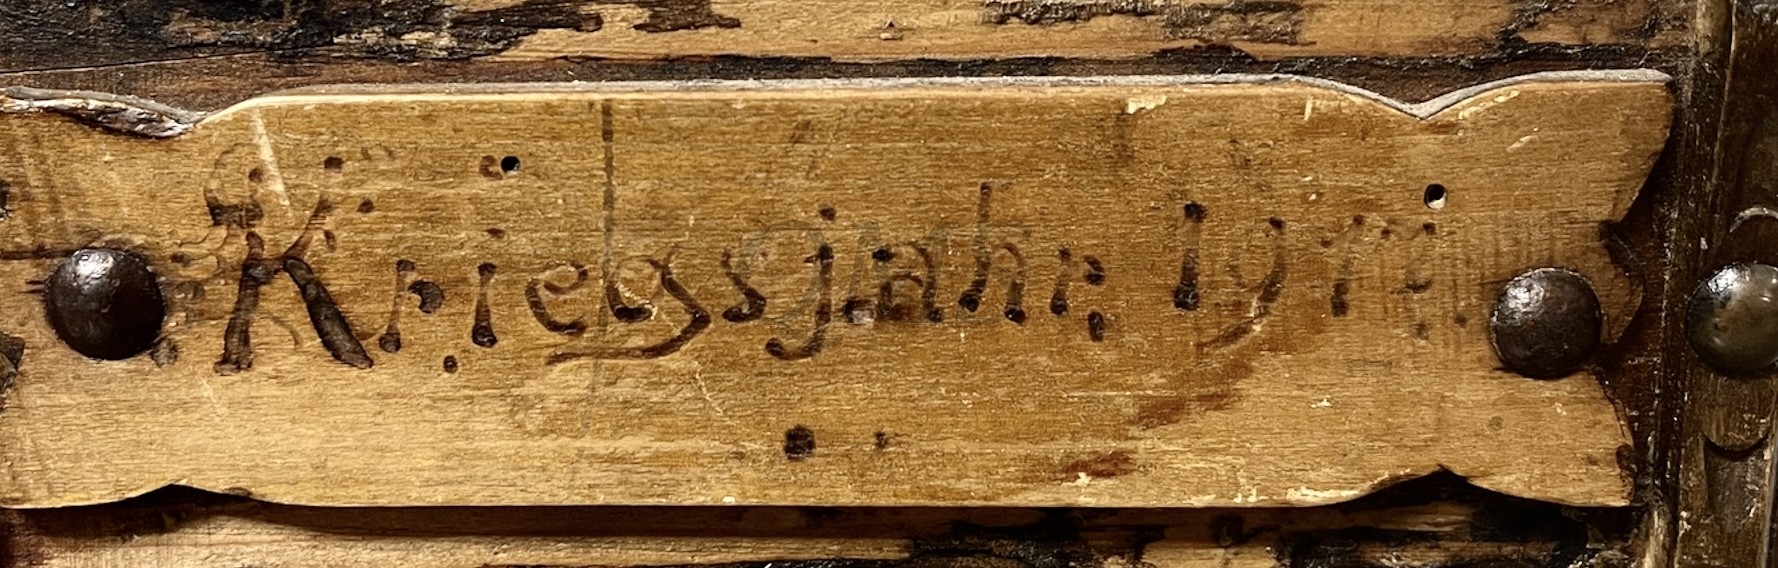 Kriegsjahr 19